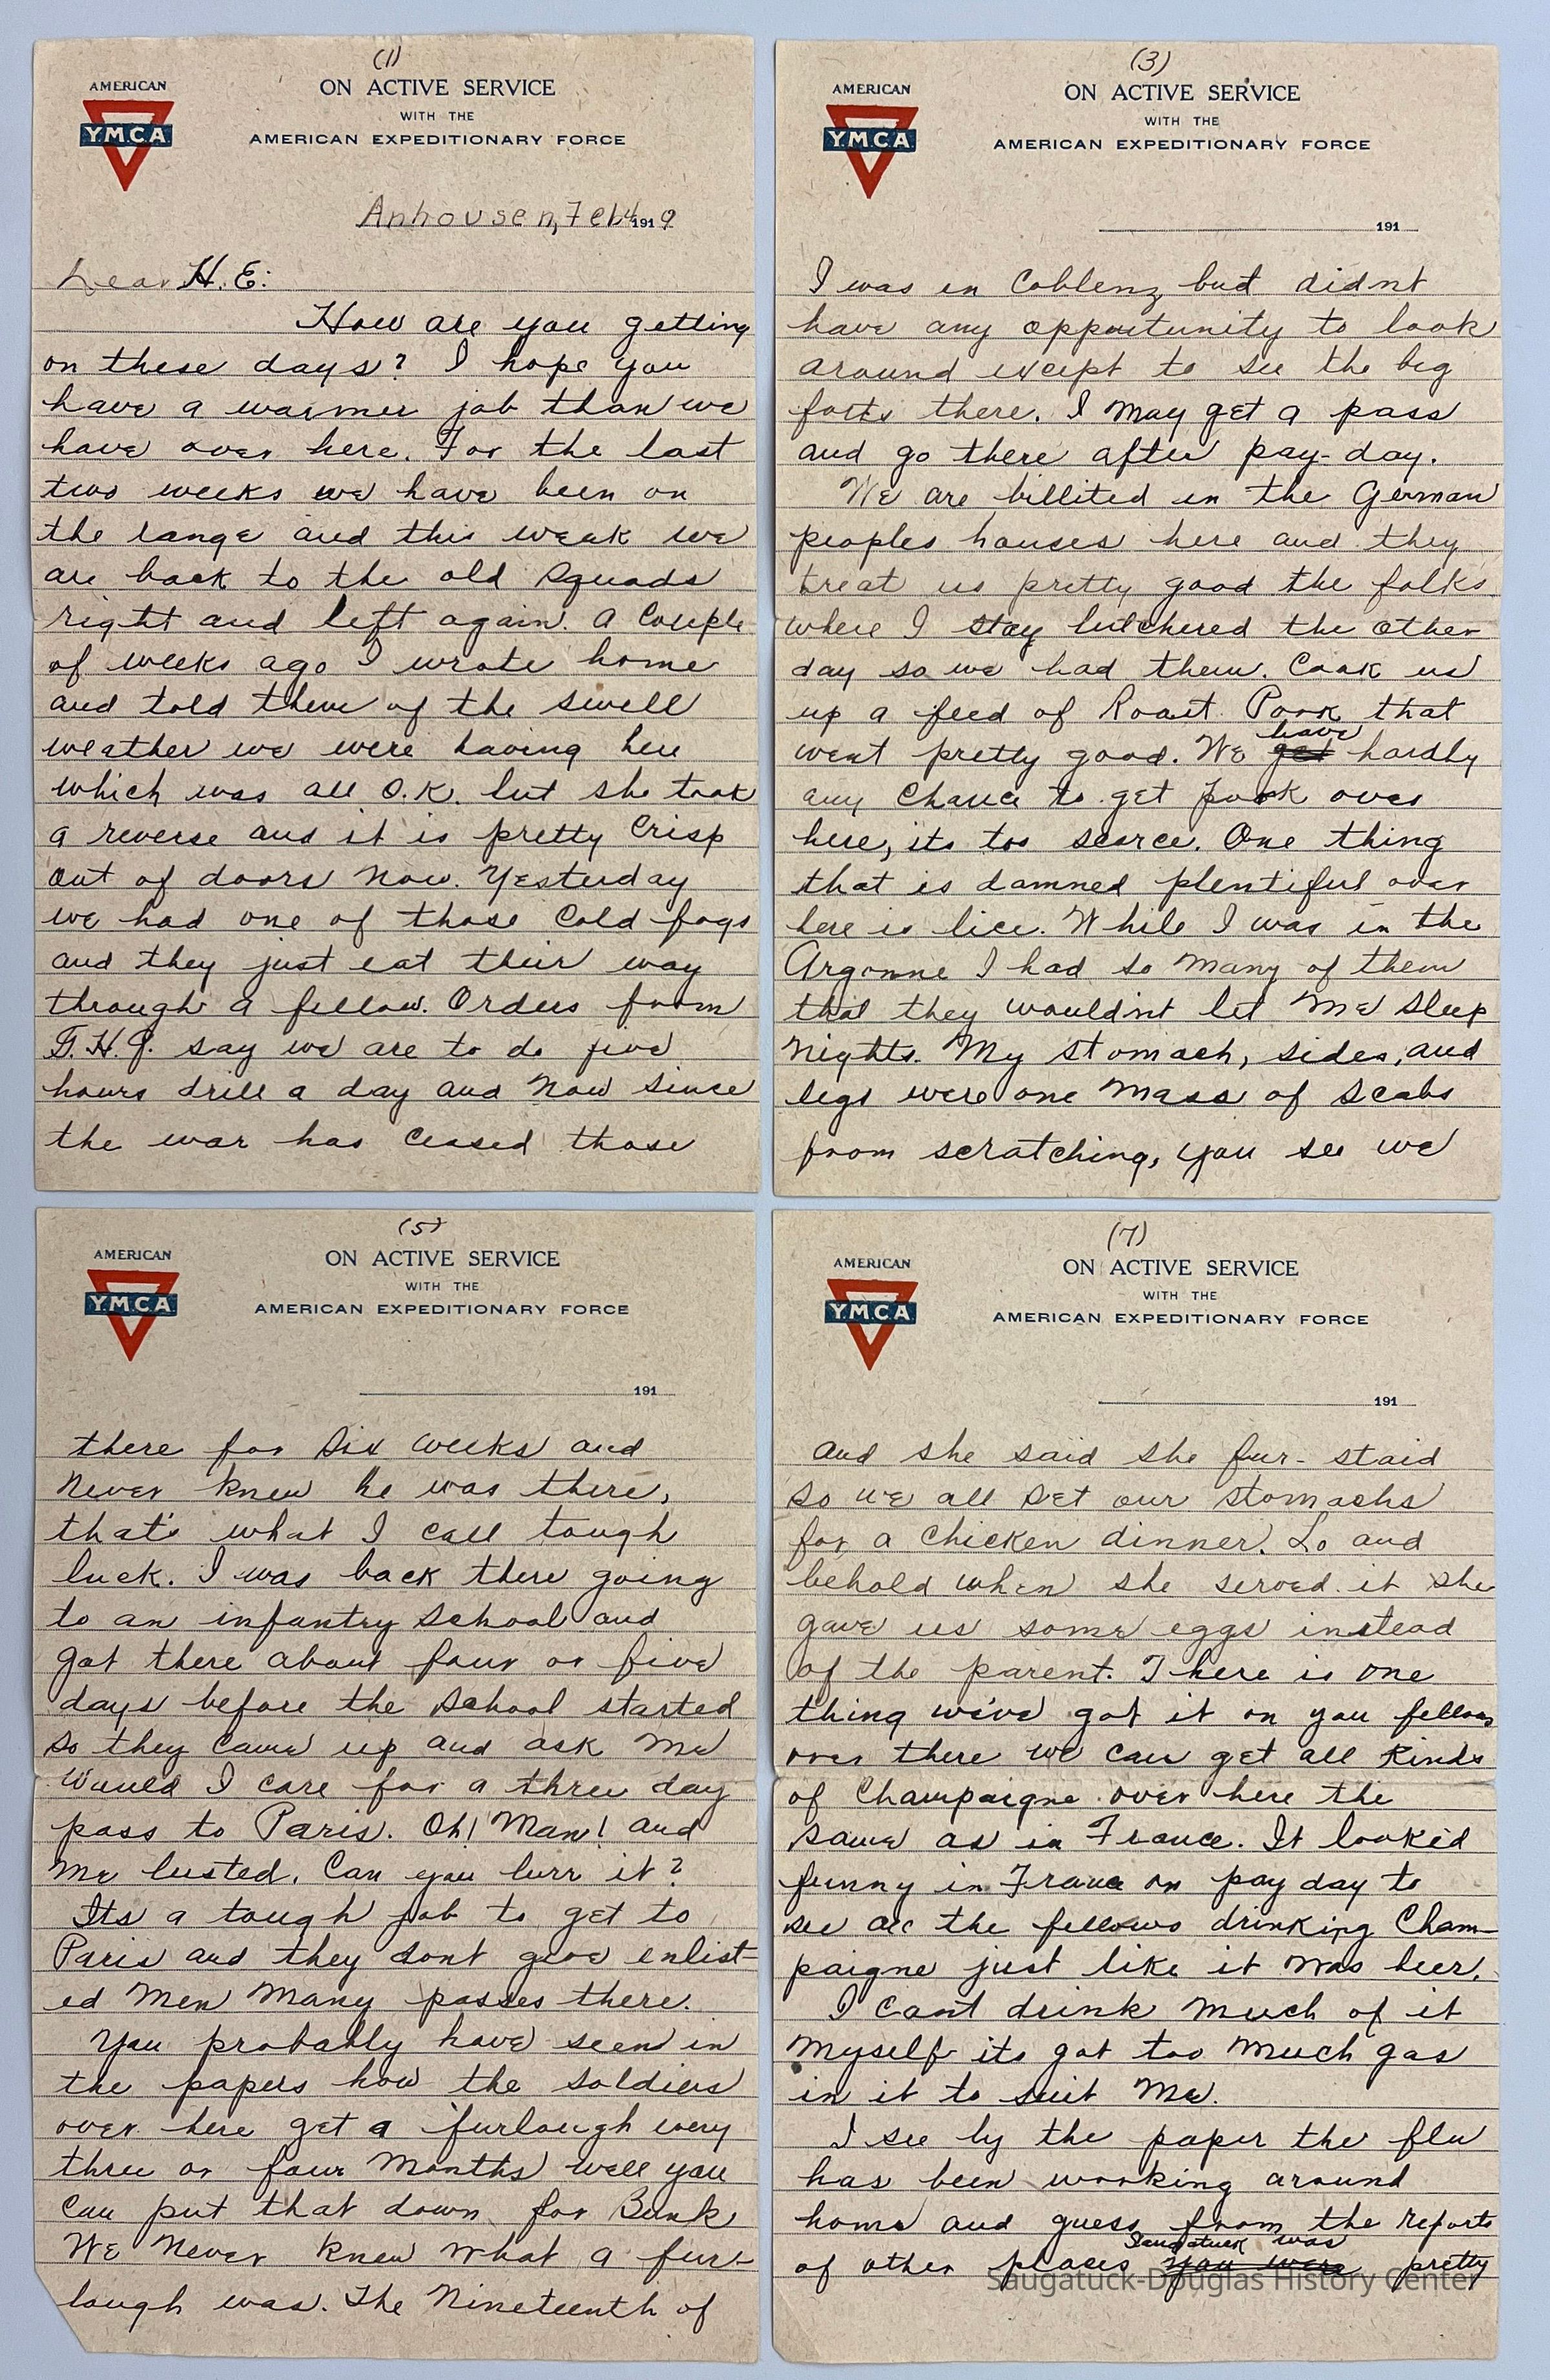 (1)
AMERICAN
YMCA
ON ACTIVE SERVICE
WITH THE
AMERICAN EXPEDITIONARY FORCE
Anhousen, Feb 4 1919
Dear H.E:
How are you getting
on these days? I hope you
have a warmer job than we
have over here. For the last
two weeks we have been on
the range and this weak we
are back to the old Squads
right and left again. A Couple
of weeks ago I wrote home
and told them of the swell
weather we were having here
which was all O.K. but she took
a reverse and it is pretty Crisp
out of doors now. Yesterday
we had one of those Cold fogs
and they just eat their way
through a fellow. Orders from
G.H.Q. say we are to do five
hours drill a day and now since
the war has ceased those
(3)
AMERICAN
YMCA
ON ACTIVE SERVICE
WITH THE
AMERICAN EXPEDITIONARY FORCE
191
I was in Coblenz but didnt
have any oppurtunity to look
around except to see the big
forts there. I may get a pass
and go there after pay-day.
We are billited in the German
peoples houses here and they
treat us pretty good the folks
where I stay butchered the other
day so we had them. Cook us
up a feed of Roast Pork that
went pretty good. We get have hardly
any Chance to get pork over
here, its too scarce. One thing
that is damned plentiful over
here is lice. While I was in the
Argonne I had so many of them
that they wouldnt let me sleep
nights. My stomach, sides, and
legs were one mass of scabs
from scratching, you see we
(5)
AMERICAN
YMCA
ON ACTIVE SERVICE
WITH THE
AMERICAN EXPEDITIONARY FORCE
191
there for six weeks and
never knew he was there,
that's what I call tough
luck. I was back there going
to an infantry school and
got there about four or five
days before the school started
so they came up and ask me
would I care for a three day
pass to Paris. Oh! Man! and
me busted. Can you burr it?
Its a tough job to get to
Paris and they dont give enlist-
ed men many passes there.
You probably have seen in
the papers how the soldiers
over here get a furlough every
three or four months well you
can put that down for Bunk
We never knew what a fur-
lough was. The Nineteenth of
(7)
AMERICAN
YMCA
ON ACTIVE SERVICE
WITH THE
AMERICAN EXPEDITIONARY FORCE
191
and she said she fur-staid
so we all set our stomachs
for a chicken dinner. Lo and
behold when she served it she
gave us some eggs instead
of the parent. There is one
thing we've got it on you fellows
over there we can get all kinds
of Champaigne over here the
same as in France. It looked
funny in France on pay day to
see all the fellows drinking Cham-
paigne just like it was beer.
I cant drink much of it
myself its got too much gas
in it to suit me.
I see by the paper the flu
has been working around
home and guess from the reports
of other places you were Saugatuck was pretty
Saugatuck-Douglas History Center